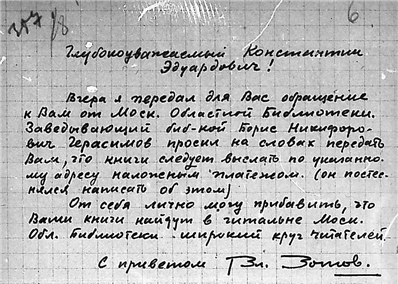 357/8
6
Глубокоуважаемый Константин
Эдуардович!
Вчера я передал для Вас обращение
к Вам от Моск. Областной Библиотеки.
Заведывающий биб-кой Борис Никифоро-
вич Герасимов просил на словах передать
Вам, что книги следует выслать по указанно-
му адресу наложеным платежом. (он постес-
нялся написать об этом)
От себя лично могу прибавить, что
Ваши книги найдут в читальне Моск.
Обл. Библиотеки широкий круг читателей.
С приветом Вл. Зотов.